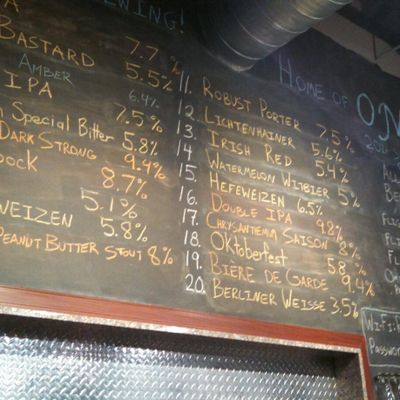 WING!
PA 7.7%
BASTARD 5.5%
AMBER 6.4%
IPA 7.5%
SPECIAL BITTER 5.8%
DARK STRONG 9.4%
BOCK 8.7%
5.1%
WEIZEN 5.8%
PEANUT BUTTER STOUT 8%
11. ROBUST PORTER 7.5%
12. LICHTENHAINER 5.6%
13. IRISH RED 5.4%
14. WATERMELON WITBIER 5%
15. HEFEWEIZEN 6.5%
16. DOUBLE IPA 9.8%
17. CHRYSANTEMUM SAISON 8%
18. OKTOBERFEST 5.8%
19. BIÈRE DE GARDE 9.4%
20. BERLINER WEISSE 3.5%
HOME OF
WiFi:
PASSWOR